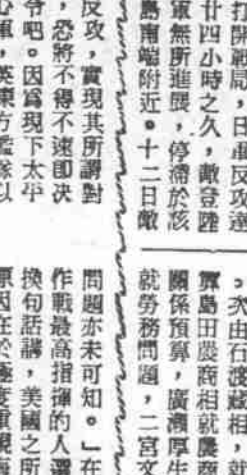 打開戰局，日軍反攻達
廿四小時之久，敵登陸
軍無所進展，停滯於該
島南端附近。十二日敵
反攻，實現其所謂對
，恐將不得不速即決
令吧。因爲現下太平
軍，英東方艦隊以
。次由石渡藏相，
島田農商相就農商
關係預算，廣瀨厚生
就勞務問題，二宮文
問題亦未可知。」在
作戰最高指揮的人選
換句話講，美國之所
原因在於極度重視